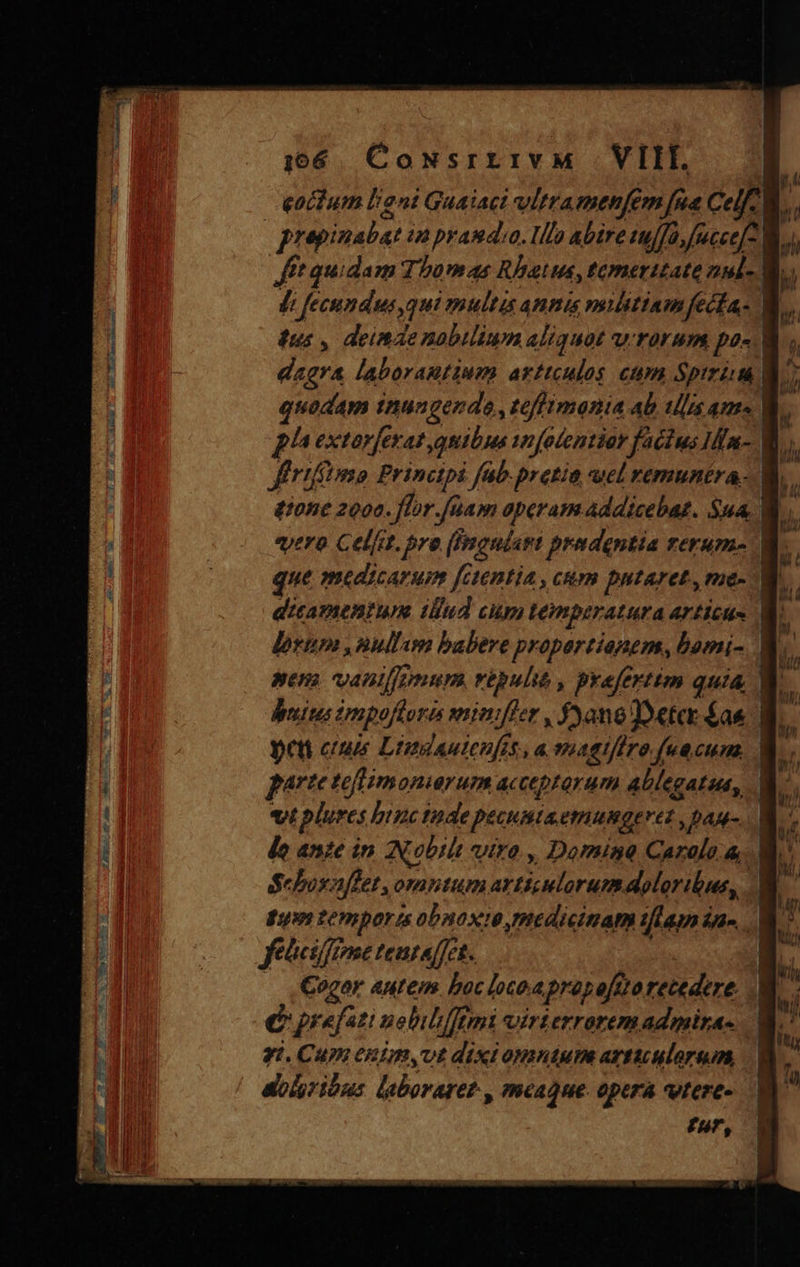 106 CONSILIVM VIII.
coctum ligni Guaiaci vltramensem sua Cels.
propinabat in prandio. Illo abire iusso, succes-
sit quidam Thomas Rhætus, temeritate nul-
li secundus, qui multis annis militiam secta-
tus, deinde nobilium aliquot virorum po-
dagra laborantium articulos cum Spiritu
quodam inungendo, testimonia ab illis am-
pla extorserat, quibus insolentior factus Illu-
strissimo Principi sub pretio vel remunera-
tione 2000. flor. suam operam addicebat. Sua
vero Celsit. pro singulari prudentia rerum-
que medicarum scientia, cum putaret, me-
dicamentum illud cum temperatura articu-
lorum, nullam habere proportionem, homi-
nem vanissimum repulit, præsertim quia
huius impostoris minister, Hans Peter Las
pen ciuis Lindauiensis, a magistro suo cum
parte testimoniorum acceptorum ablegatus,
vt plures hinc inde pecunia emungeret, pau-
lo ante in Nobili viro, Domino Carolo a
Schornstet, omnium articulorum doloribus,
tum temporis obnoxio, medicinam istam in-
felicissime tentasset.
Cogor autem hoc loco a proposito recedere
& præfati nobilissimi viri errorem admira-
ri. Cum enim, vt dixi omnium articulorum
doloribus laboraret, meaque opera vtere-
tur,